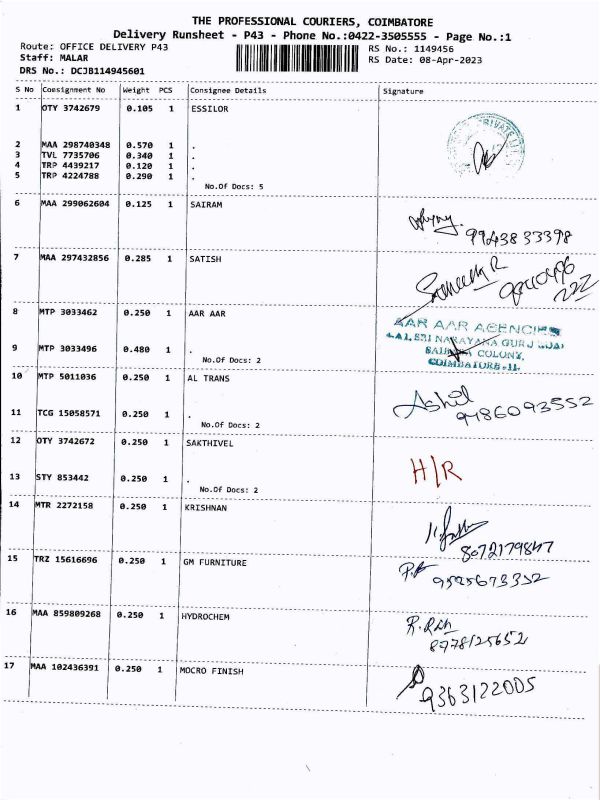 THE PROFESSIONAL COURIERS, COIMBATORE
Delivery Runsheet - P43 - Phone No.:0422-3505555 - Page No.:1
Route: OFFICE DELIVERY P43 RS No.: 1149456
Staff: MALAR RS Date: 08-Apr-2023
DRS No.: DCJB114945601
S No Coesignment No Weight PCS Consignee Details Signature
1 OTY 3742679 0.105 1 ESSILOR
2 MAA 298740348 0.570 1 .
3 TVL 7735706 0.340 1 .
4 TRP 4439217 0.120 1 .
5 TRP 4224788 0.290 1 .
No.Of Docs: 5
6 MAA 299062604 0.125 1 SAIRAM
9943833398
7 MAA 297432856 0.285 1 SATISH
8 MTP 3033462 0.250 1 AAR AAR
AAR AAR AGENCIES
SRI NARAYANA GURU
9 MTP 3033496 0.480 1 . COLONY,
No.Of Docs: 2 COIMBATORE-11.
10 MTP 5011036 0.250 1 AL TRANS
Ashil
11 TCG 15058571 0.250 1 . 9486093552
No.Of Docs: 2
12 OTY 3742672 0.250 1 SAKTHIVEL
H/R
13 STY 853442 0.250 1 .
No.Of Docs: 2
14 MTR 2272158 0.250 1 KRISHNAN
8072179847
15 TRZ 15616696 0.250 1 GM FURNITURE
9525673352
16 MAA 859809268 0.250 1 HYDROCHEM
8778125652
17 MAA 102436391 0.250 1 MOCRO FINISH
9363122005